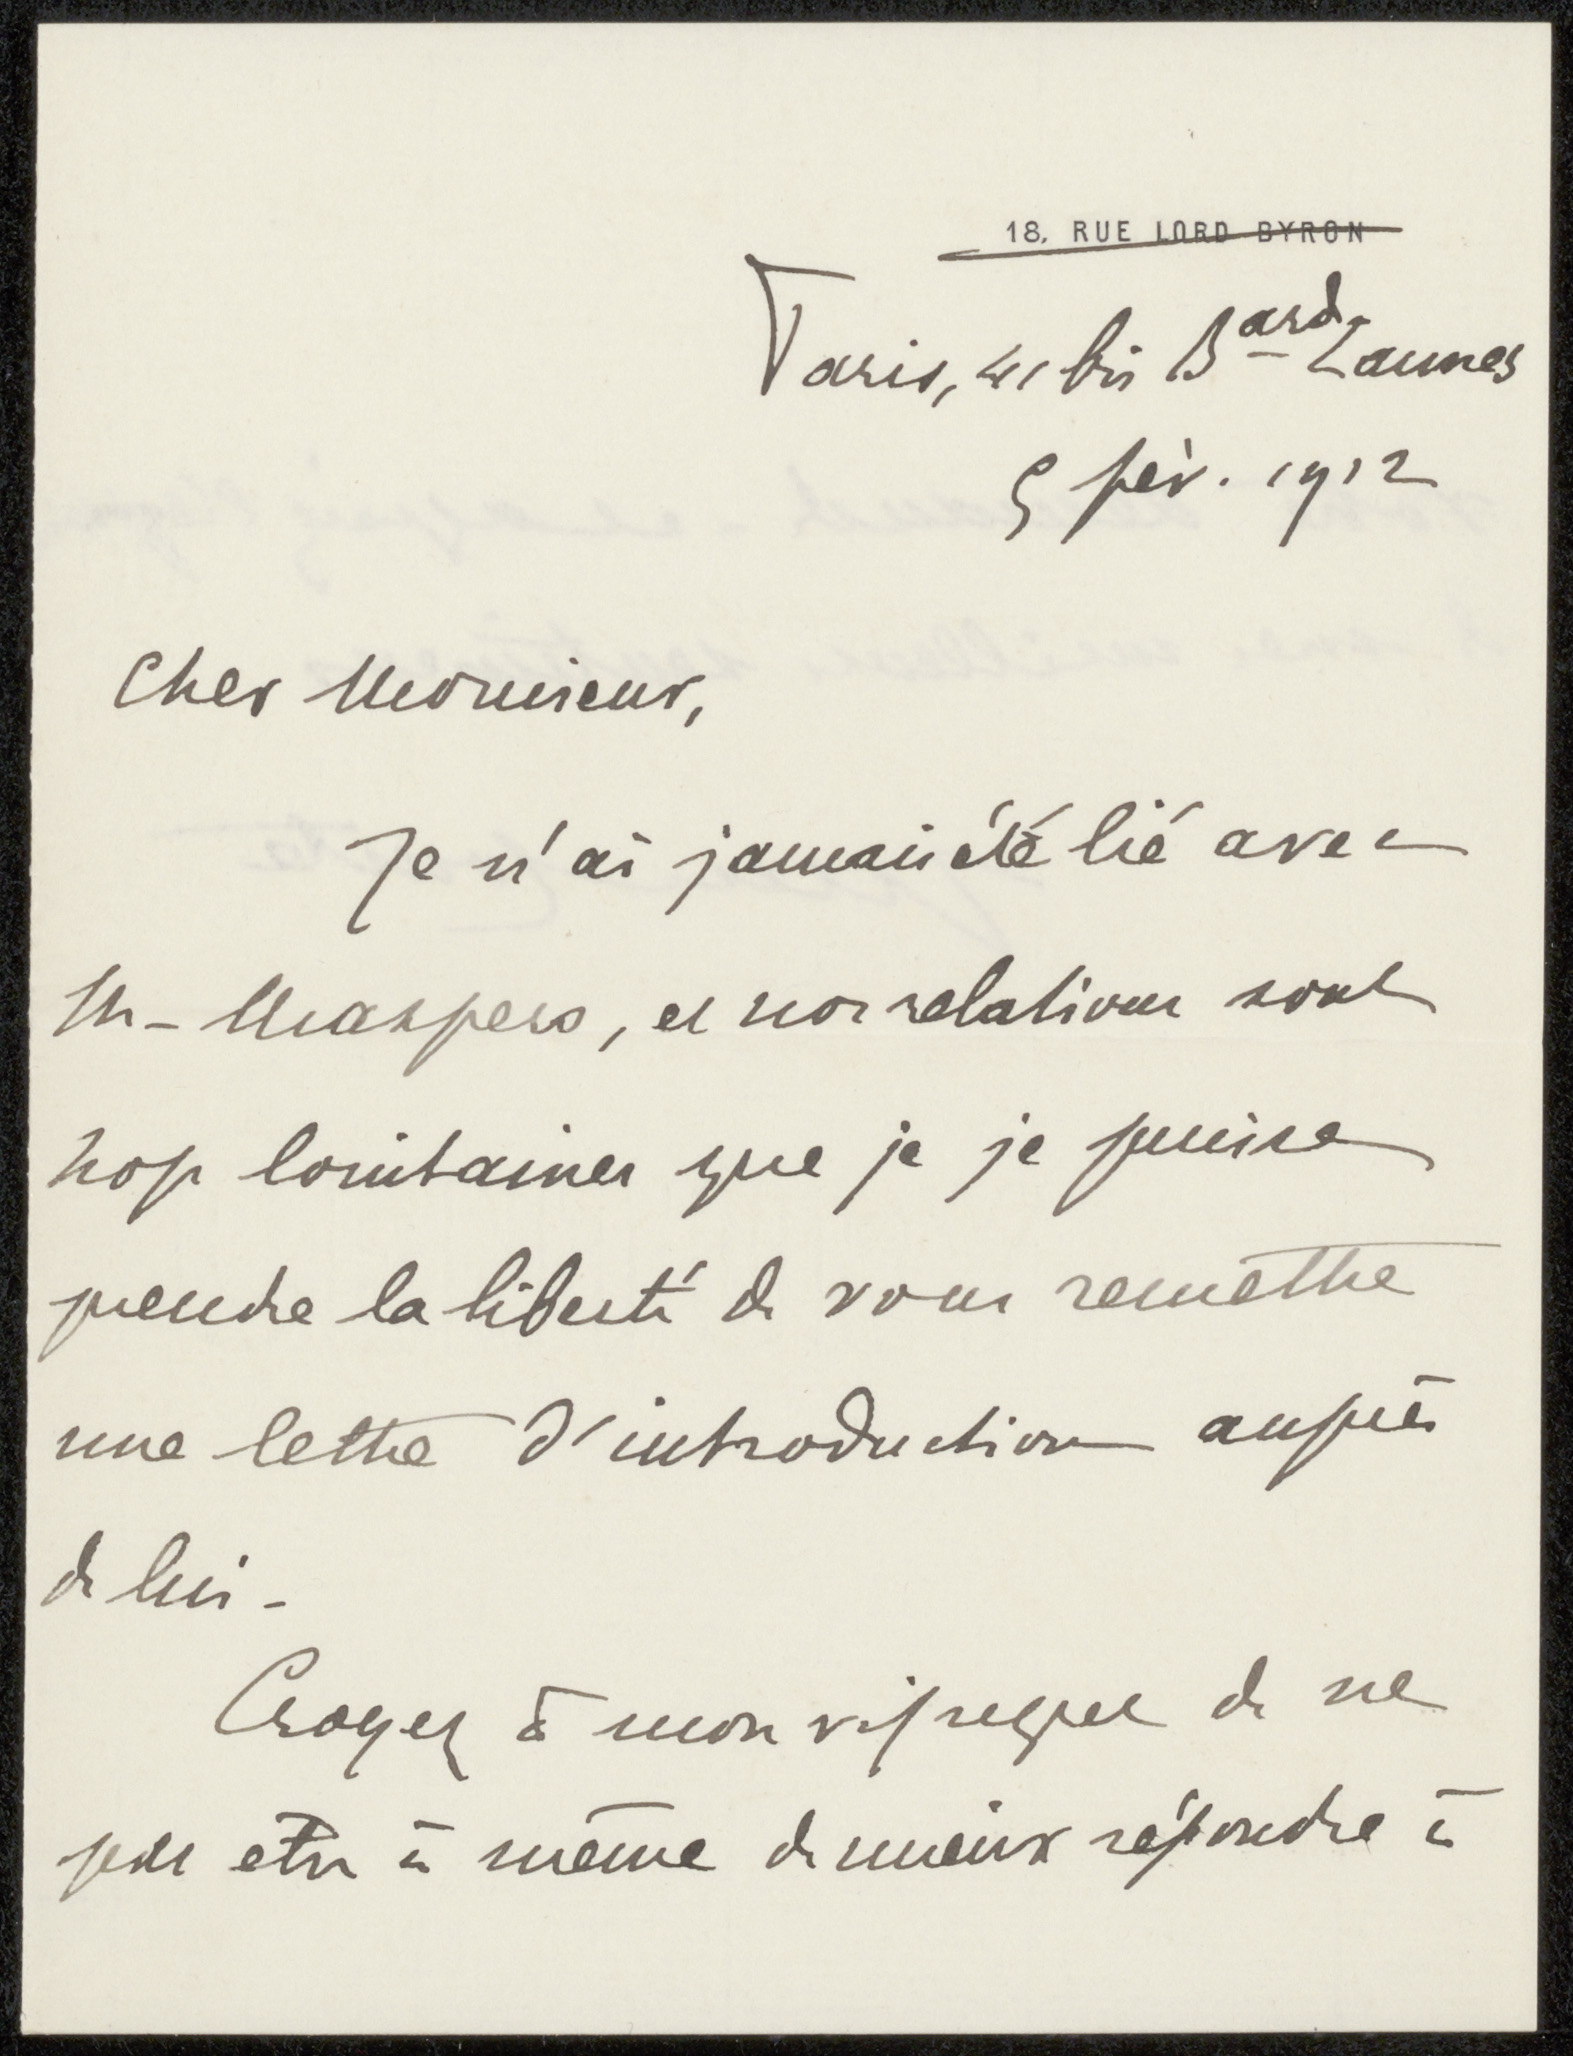 18, RUE LORD BYRON
Paris, 41 bis Bard Lannes
5 fév. 1912
Cher Monsieur,
Je n'ai jamais été lié avec
M- Maspero, et nos relations sont
trop lointaines que je je puisse
prendre la liberté de vous remettre
une lettre d'introduction auprès
de lui-
Croyez à mon vif regret de ne
pas être à même de mieux répondre à